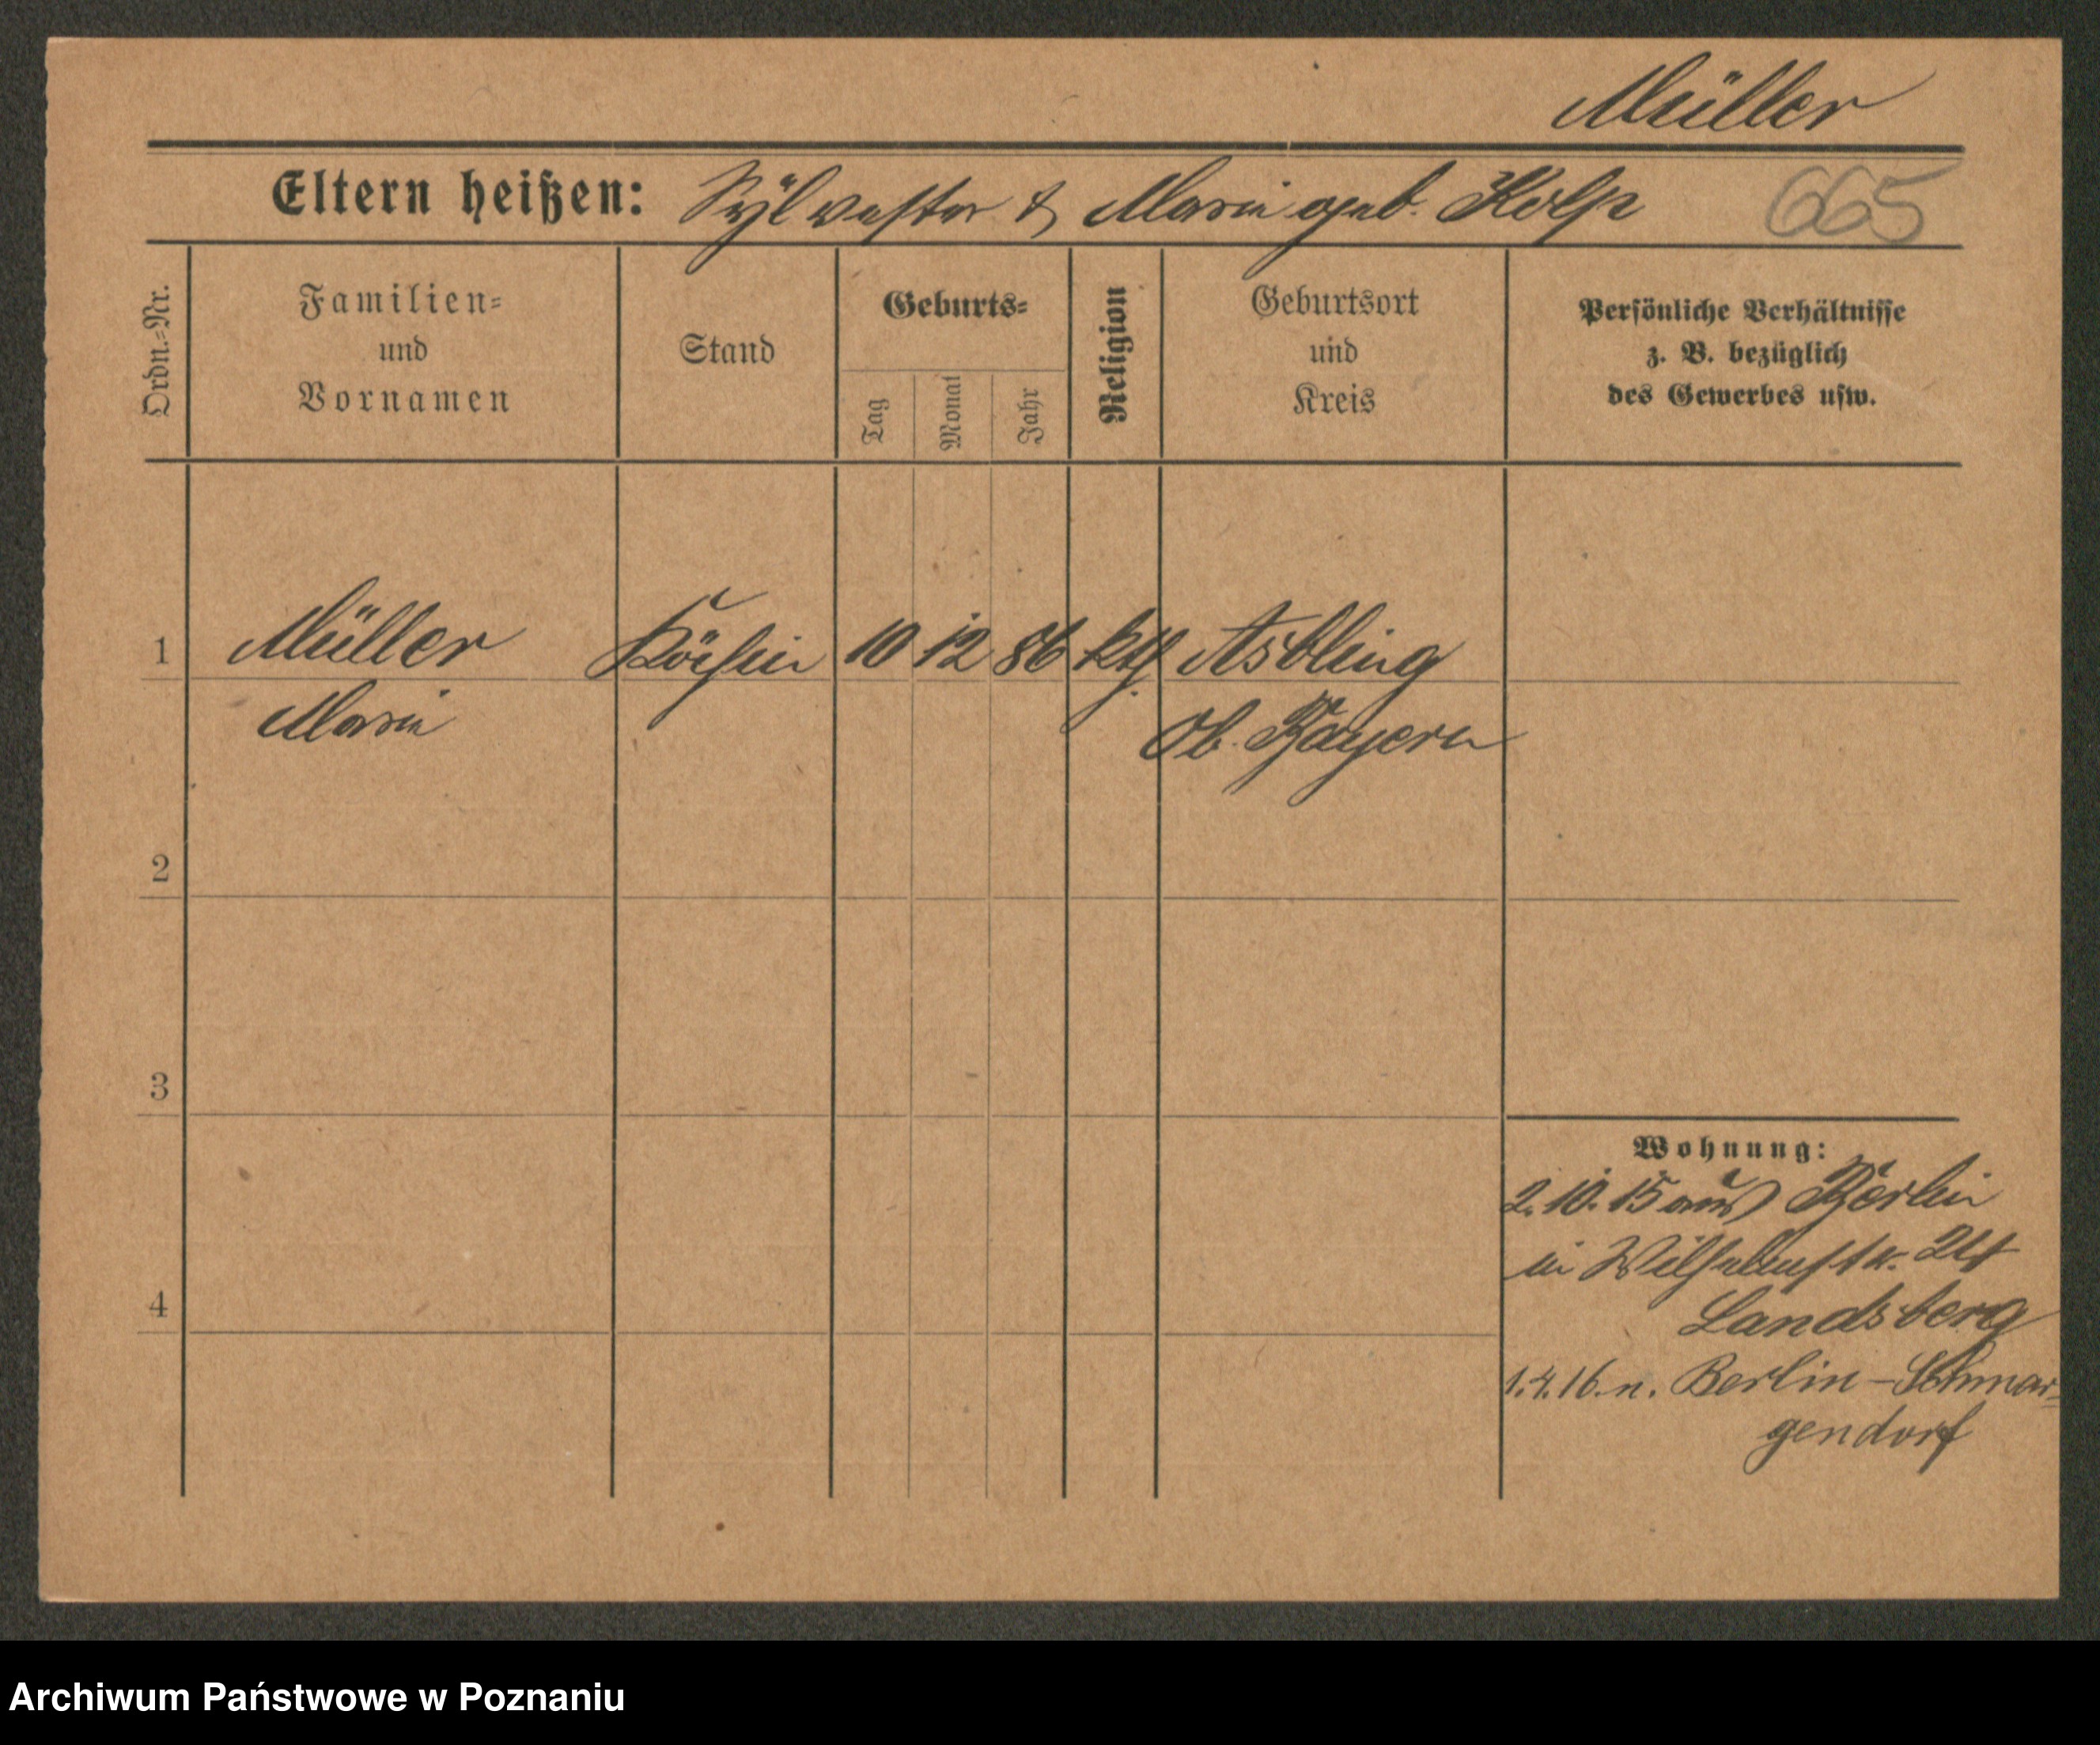 Müller
Eltern heißen: Sylvester & Marie geb. Kolp 665
Ordn.=Nr.
Familien=
und
Vornamen
Stand
Geburts=
Tag
Monat
Jahr
Religion
Geburtsort
und
Kreis
Persönliche Verhältnisse
z. B. bezüglich
des Gewerbes usw.
1 Müller Köchin 10 12 86 kth Assling
Marie Ob. Bayern
2
3
4
Wohnung:
2.10.15 aus Berlin
in Wilhelmstr. 24
Landsberg
1.4.16. n. Berlin-Schmar=
gendorf
Archiwum Państwowe w Poznaniu